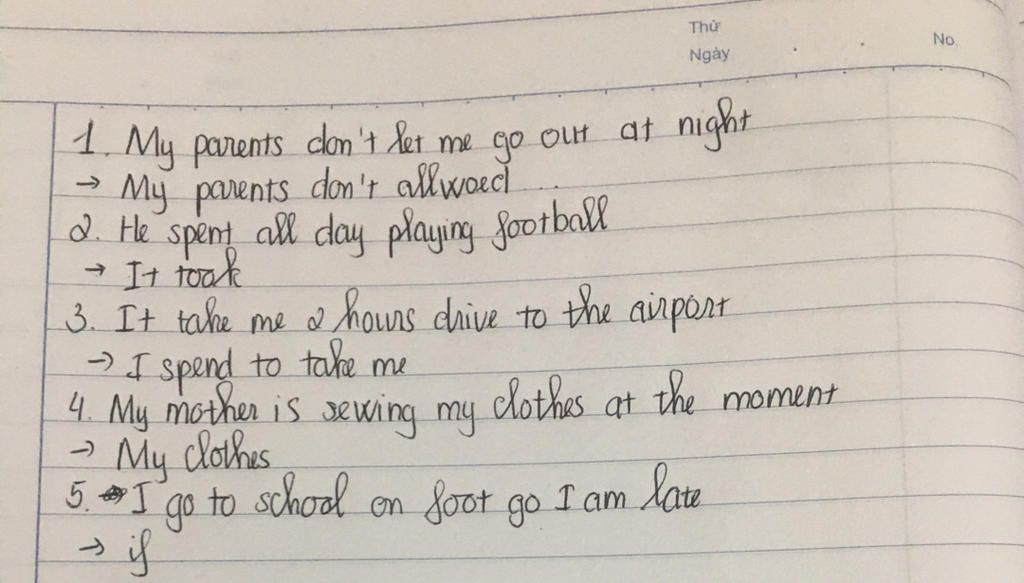 Thứ
Ngày
No.
1. My parents don't let me go out at night
→ My parents don't allwoed ...
2. He spent all day playing football
→ It took
3. It take me 2 hours drive to the airport
→ I spend to take me
4. My mother is sewing my clothes at the moment
→ My clothes
5. I go to school on foot go I am late
→ if